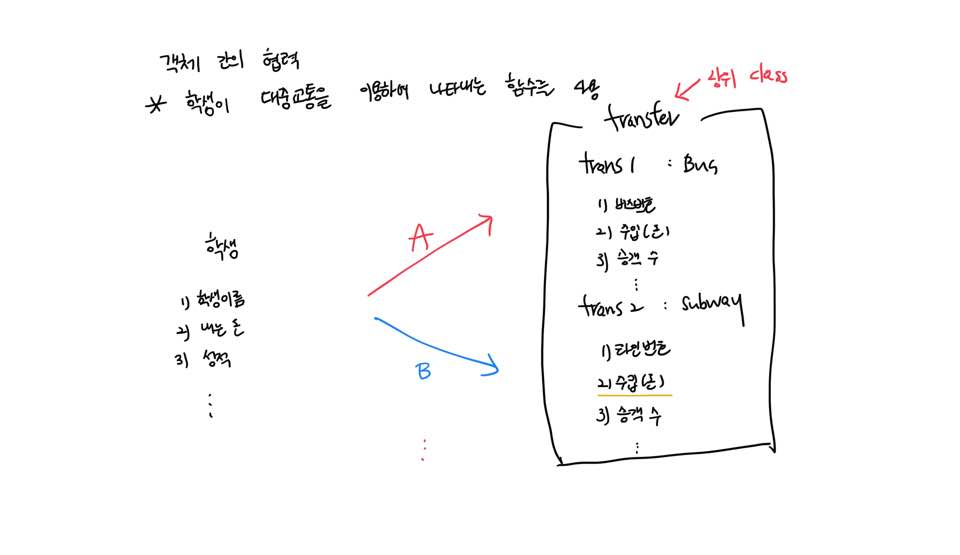 객체 간의 협력
* 학생이 대중교통을 이용하여 나타내는 함수를 사용
상위 class
transfer
trans 1 : Bus
1) 버스번호
2) 수입(돈)
3) 승객 수
⋮
trans 2 : subway
1) 라인번호
2) 수입(돈)
3) 승객 수
⋮
학생
1) 학생이름
2) 내는 돈
3) 성적
⋮
A
B
⋮